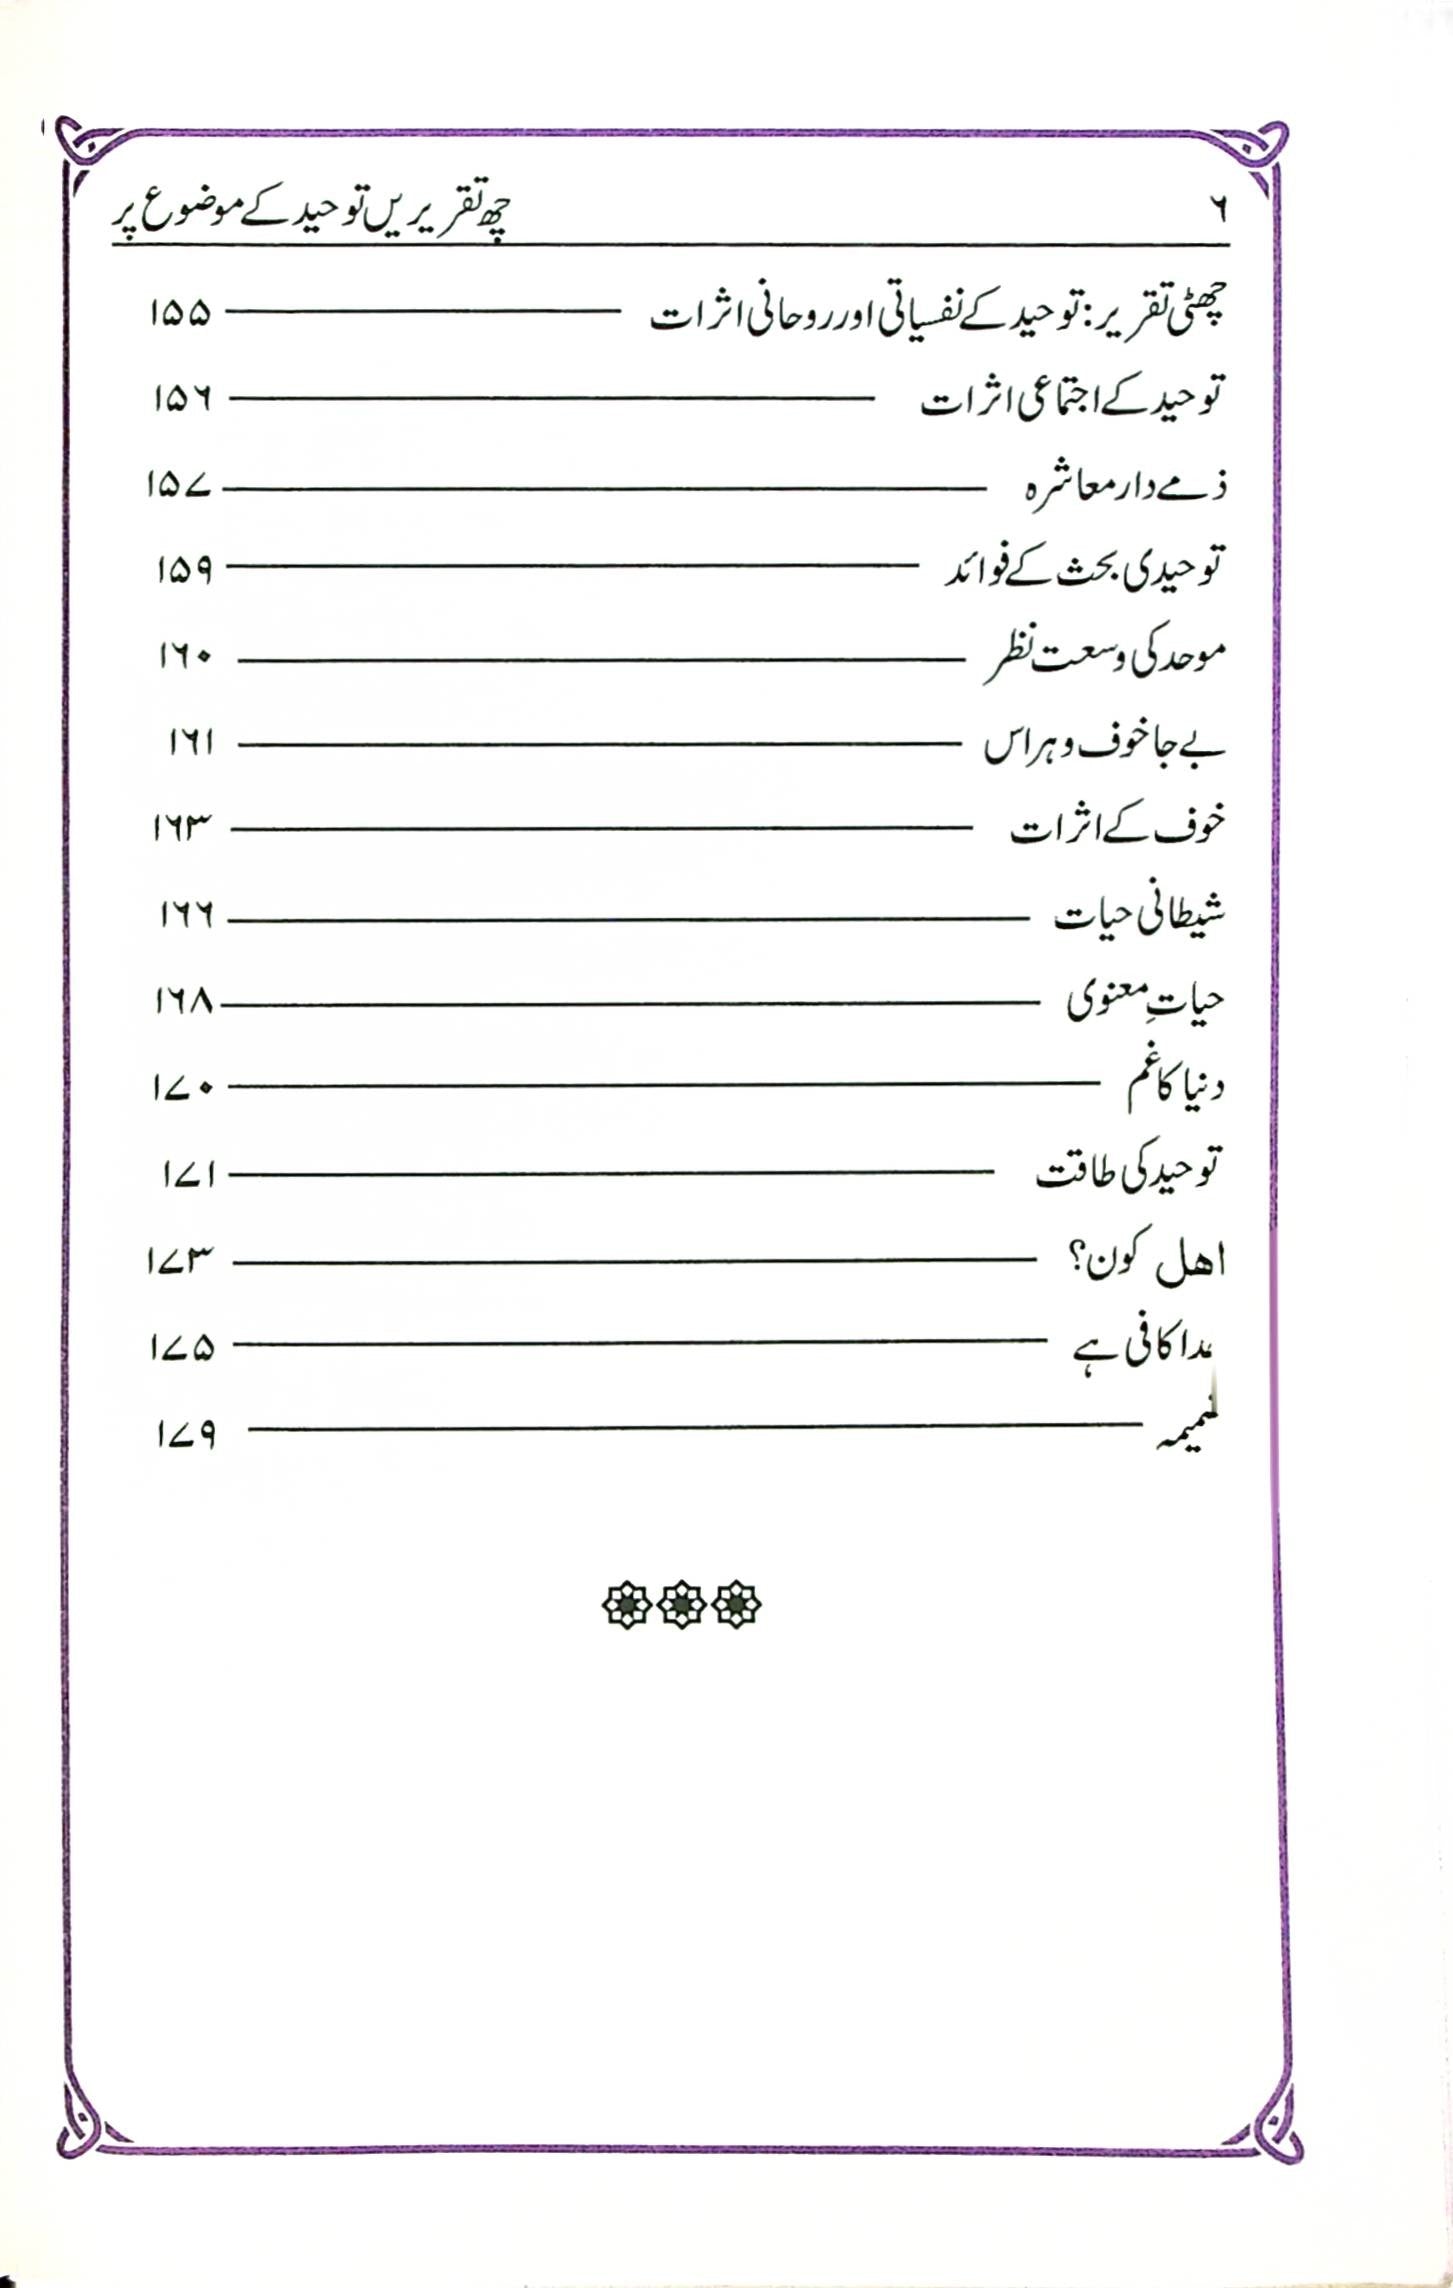 ۶ چھ تقریریں توحید کے موضوع پر
چھٹی تقریر: توحید کے نفسیاتی اور روحانی اثرات ۱۵۵
توحید کے اجتماعی اثرات ۱۵۶
ذمے دار معاشرہ ۱۵۷
توحیدی بحث کے فوائد ۱۵۹
موحد کی وسعت نظر ۱۶۰
بے جا خوف و ہراس ۱۶۱
خوف کے اثرات ۱۶۳
شیطانی حیات ۱۶۶
حیاتِ معنوی ۱۶۸
دنیا کا غم ۱۷۰
توحید کی طاقت ۱۷۱
اهل کون؟ ۱۷۳
کافی ہے ۱۷۵
ضمیمہ ۱۷۹